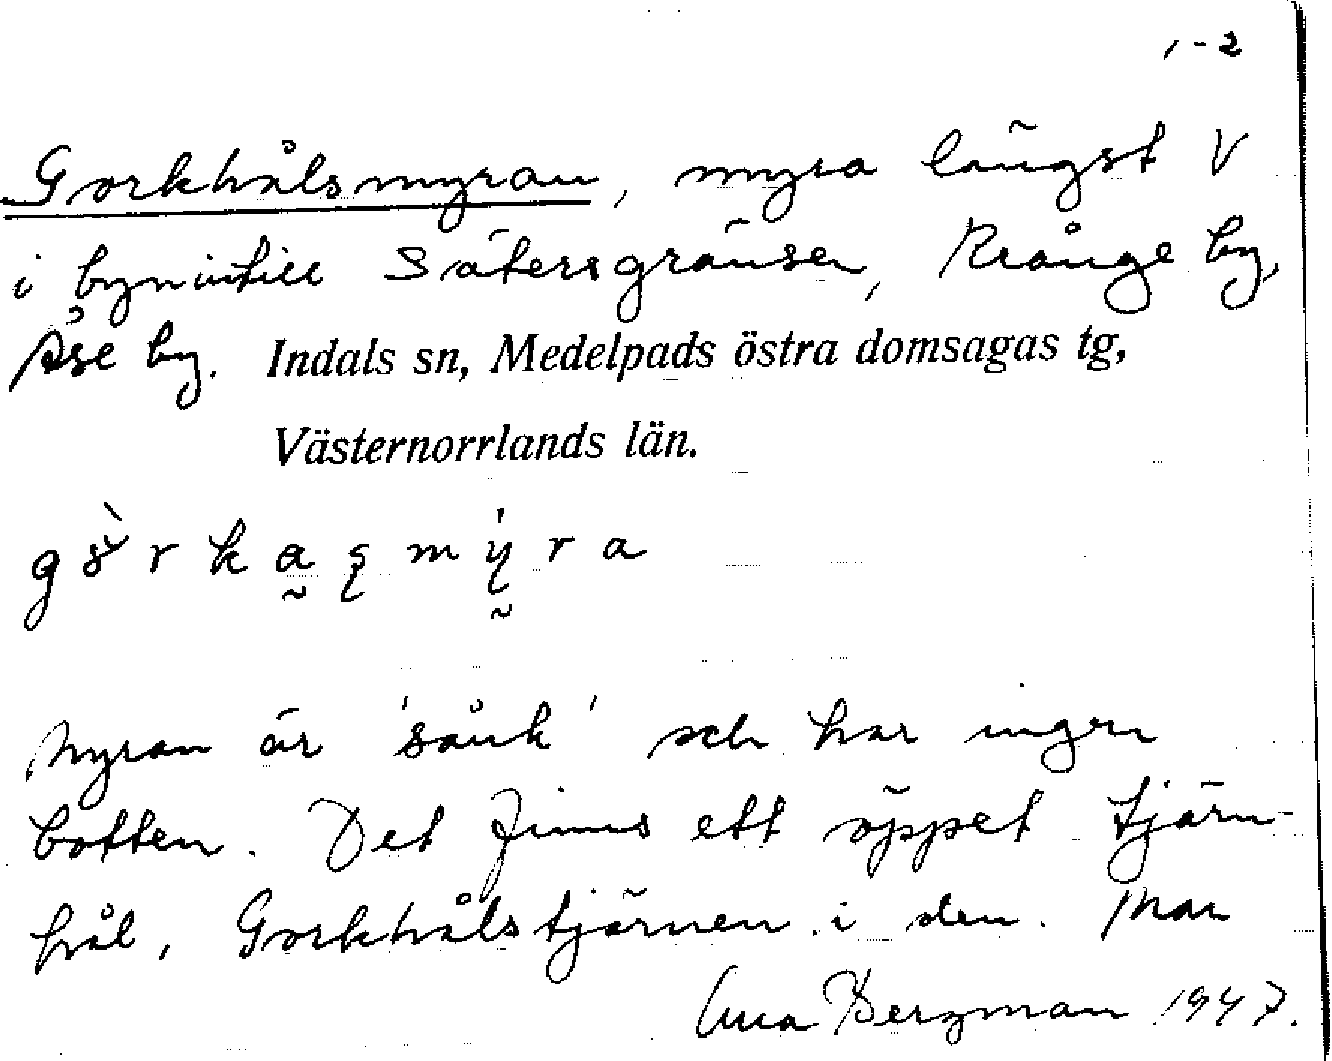 1-2
Gorkhålsmyran, myra längst V
i byn intill Sätersgränsen, Krånge by,
Åse by. Indals sn, Medelpads östra domsagas tg,
Västernorrlands län.
Myran är 'sånk' och har ingen
botten. Det finns ett öppet tjärn-
hål, Gorkhålstjärnen i den. Man
Bergman 1947.